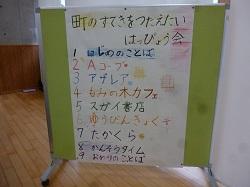 町のすてきをつたえたい
はっぴょう会
1 はじめのことば
2 Aコープ
3 アザレア
4 もみの木カフェ
5 スガイ書店
6 ゆうびんきょく
7 たかくら
8 かんそうタイム
9 おわりのことば